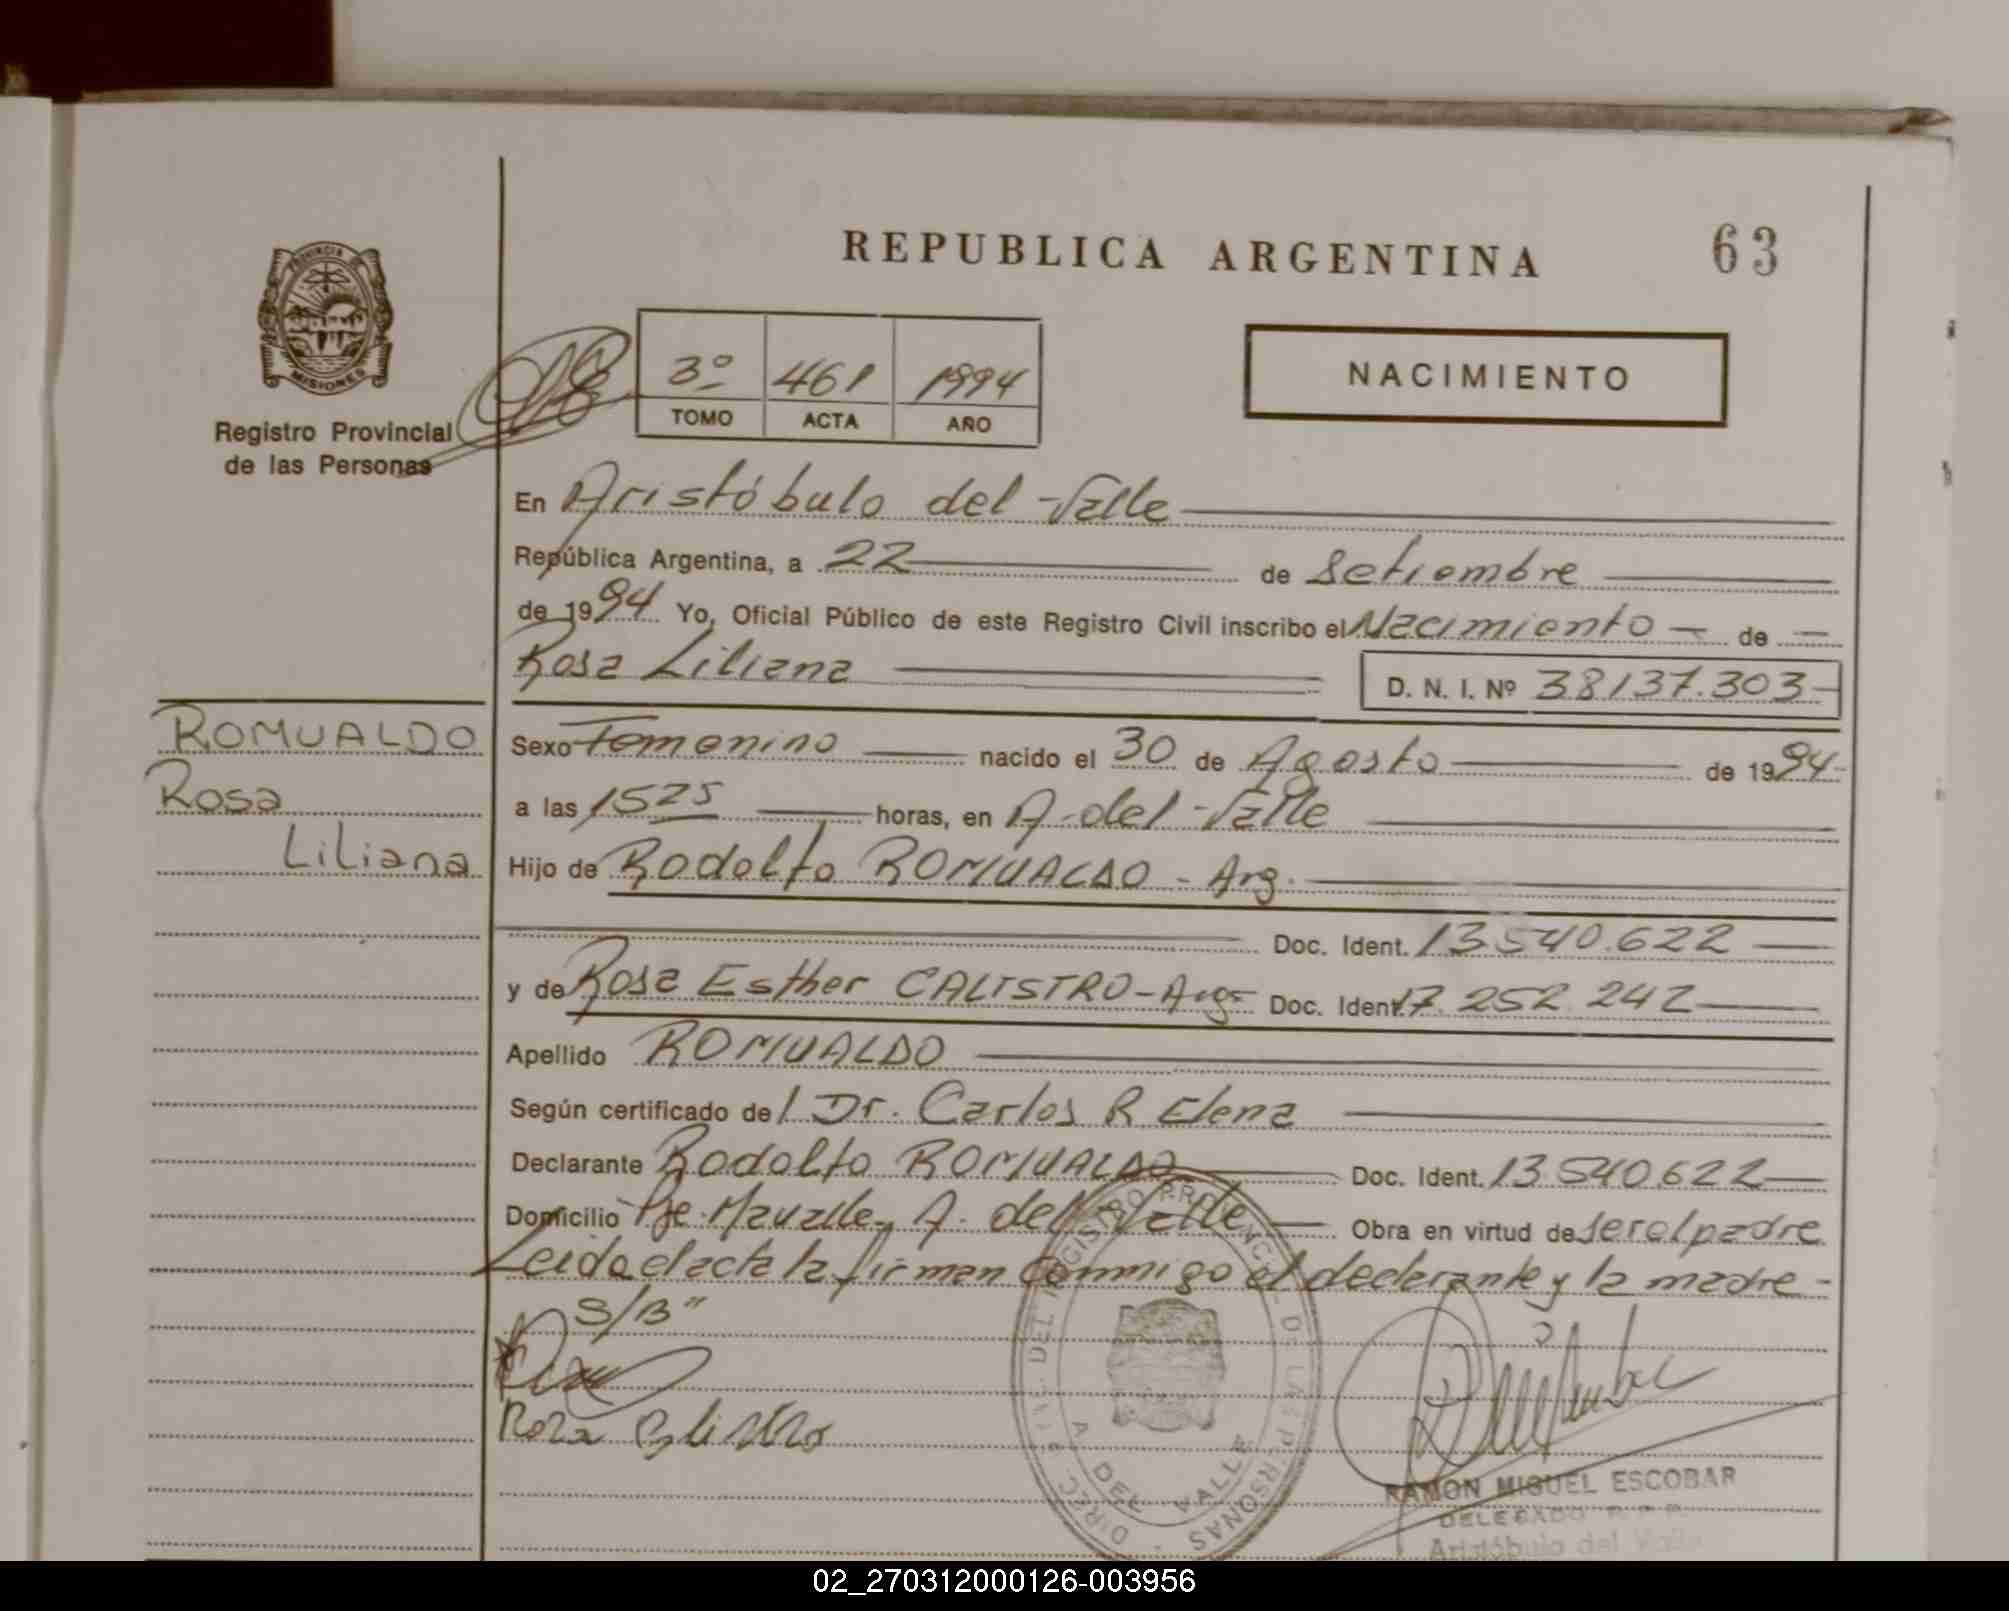 REPUBLICA ARGENTINA
63
PROVINCIA DE
MISIONES
Registro Provincial
de las Personas
3º 461 1994
TOMO ACTA AÑO
NACIMIENTO
En Aristóbulo del Valle
República Argentina, a 22 de Setiembre
de 1994 Yo, Oficial Público de este Registro Civil inscribo el Nacimiento de
Rosa Liliana D. N. I. Nº 38137.303
ROMUALDO
Rosa
Liliana
Sexo Femenino nacido el 30 de Agosto de 1994
a las 1525 horas, en A. del Valle
Hijo de Rodolfo ROMUALDO - Arg.
Doc. Ident. 13.540.622
y de Rosa Esther CALISTRO - Arg. Doc. Ident. 17.252.242
Apellido ROMUALDO
Según certificado del Dr. Carlos R. Elena
Declarante Rodolfo ROMUALDO Doc. Ident. 13.540.622
Domicilio A. del Valle Obra en virtud de ser el padre
Leída el acta la firman conmigo el declarante y la madre -
S/B"
Rosa Calistro
DIREC. GRAL. DEL REGISTRO PROVINCIAL DE LAS PERSONAS
A. DEL VALLE
RAMON MIGUEL ESCOBAR
DELEGADO R. P. P.
Aristóbulo del Valle
02_270312000126-003956